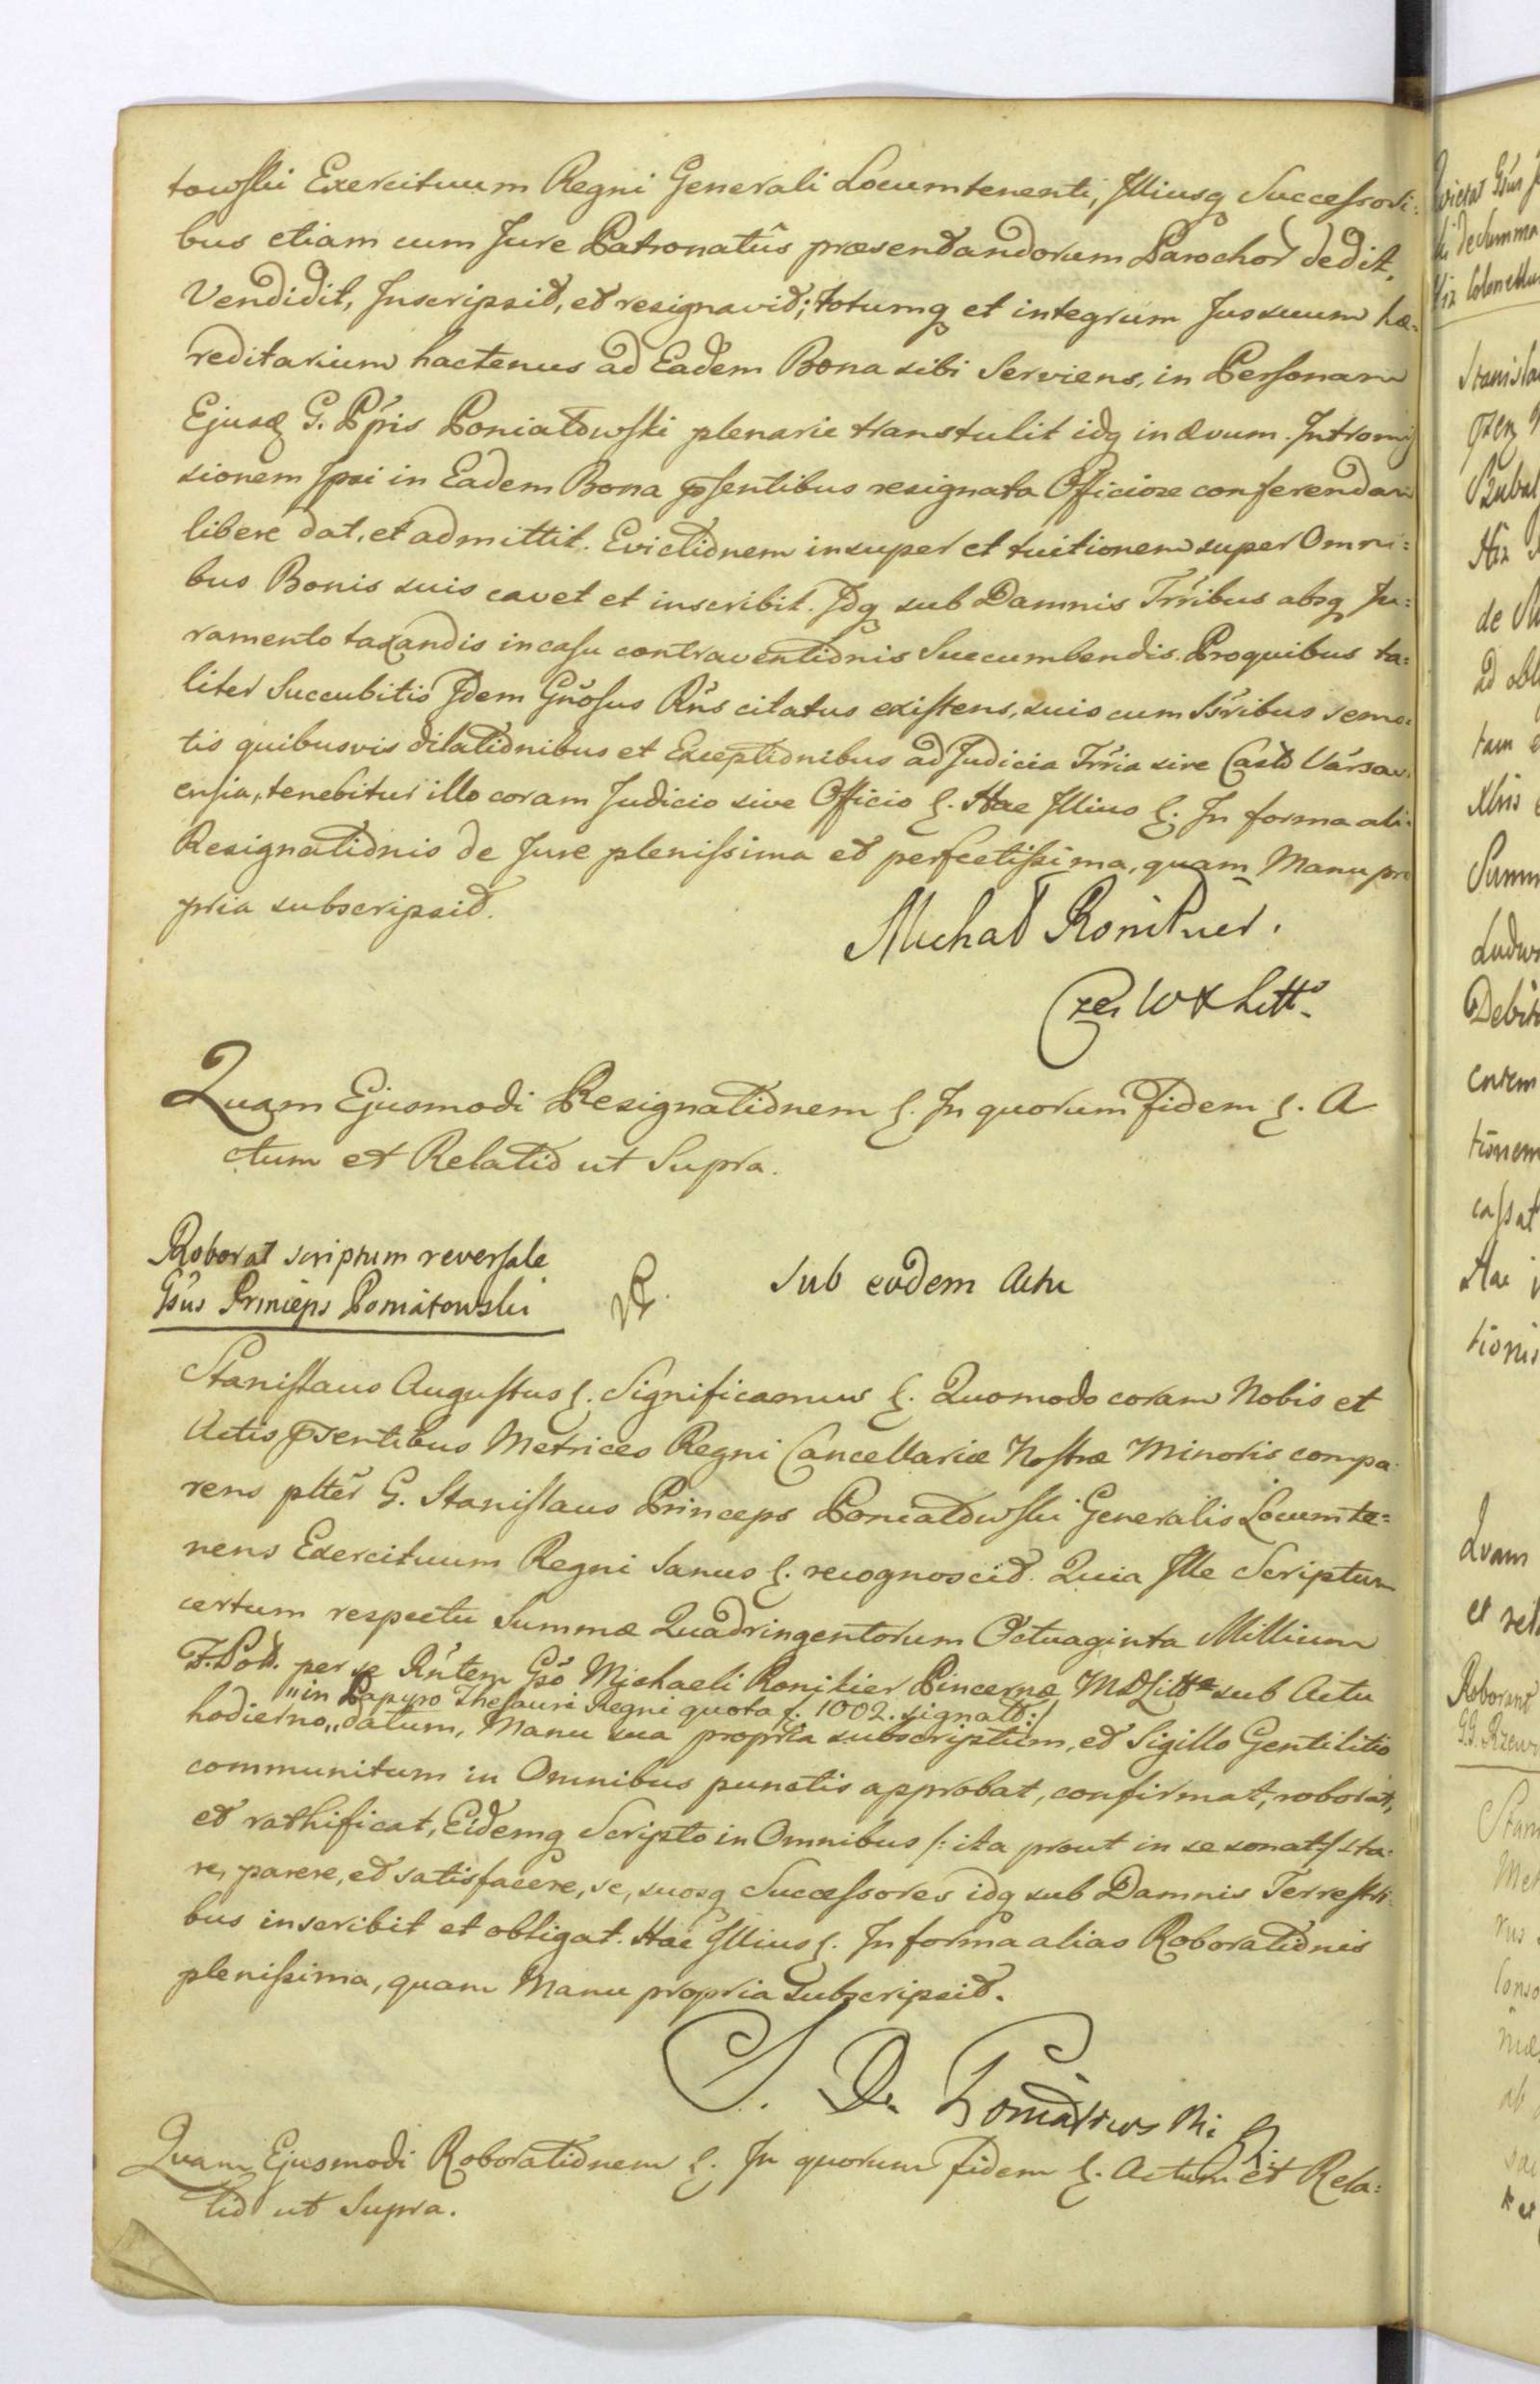 towski Exercituum Regni Generali Locumtenenti, Illiusq Successori:
bus etiam cum Jure Patronatûs præsentandorum Parochor dedit,
Vendidit, Inscripsit, et resignavit; totumq et integrum Jus suum hæ:
reditarium hactenus ad Eadem Bona sibi Serviens, in Personam
Ejusd G. Ppis Poniatowski plenarie transtulit idq in ævum. Intromis
sionem Ipsi in Eadem Bona psentibus resignata Officiose conferendam
libere dat, et admittit. Evictionem insuper et tuitionem super Omni:
bus Bonis suis cavet et inscribit. Idq sub Damnis Trribus absq Ju:
ramento taxandis in casu contraventionis Succumbendis. Pro quibus ta:
liter Succubitis Idem Gnosus Rns citatus existens, suis cum Ssribus semo:
tis quibusvis dilationibus et Exceptionibus ad Judicia Trria sive Casto Varsav:
ensia, tenebitur illo coram Judicio sive Officio &. Hac Illius &. In forma ali:
Resignationis de Jure plenissima et perfectissima, quam Manu pro
pria subscripsit.
Michał Ronikier.
Cześ W X Litt°
Quam Ejusmodi Resignationem &. In quorum fidem &. A
ctum et Relatio ut Supra.
Roborat scriptum reversale
Gsus Princeps Poniatowski
sub eodem Actu
Stanislaus Augustus &. Significamus &. Quomodo coram Nobis et
Actis psentibus Metrices Regni Cancellariæ Nostræ Minoris compa
rens plter G. Stanislaus Princeps Poniatowski Generalis Locumte=
nens Exercituum Regni Sanus &. recognoscit. Quia Ille Scriptum
certum respectu Summæ Quadringentorum Octuaginta Millium
F. Poll. per se Rntem Gso Michaeli Ronikier Pincernæ MDLittæ sub Actu
"in Papyro Thesauri Regni quota f. 1002. signato:/
hodierno,, datum, Manu sua propria subscriptum, et Sigillo Gentilitio
communitum in Omnibus punctis approbat, confirmat, roborat,
et rathificat, Eidemq Scripto in Omnibus /: ita prout in se sonat:/ sta:
re, parere, et satisfacere, se, suosq Successores idq sub Damnis Terrestri
bus inscribit et obligat. Hac Illius &. In forma alias Roborationis
plenissima, quam Manu propria Subscripsit.
S. P. Poniatowski
Quam Ejusmodi Roborationem &. In quorum fidem &. Actum et Rela:
tio ut Supra.